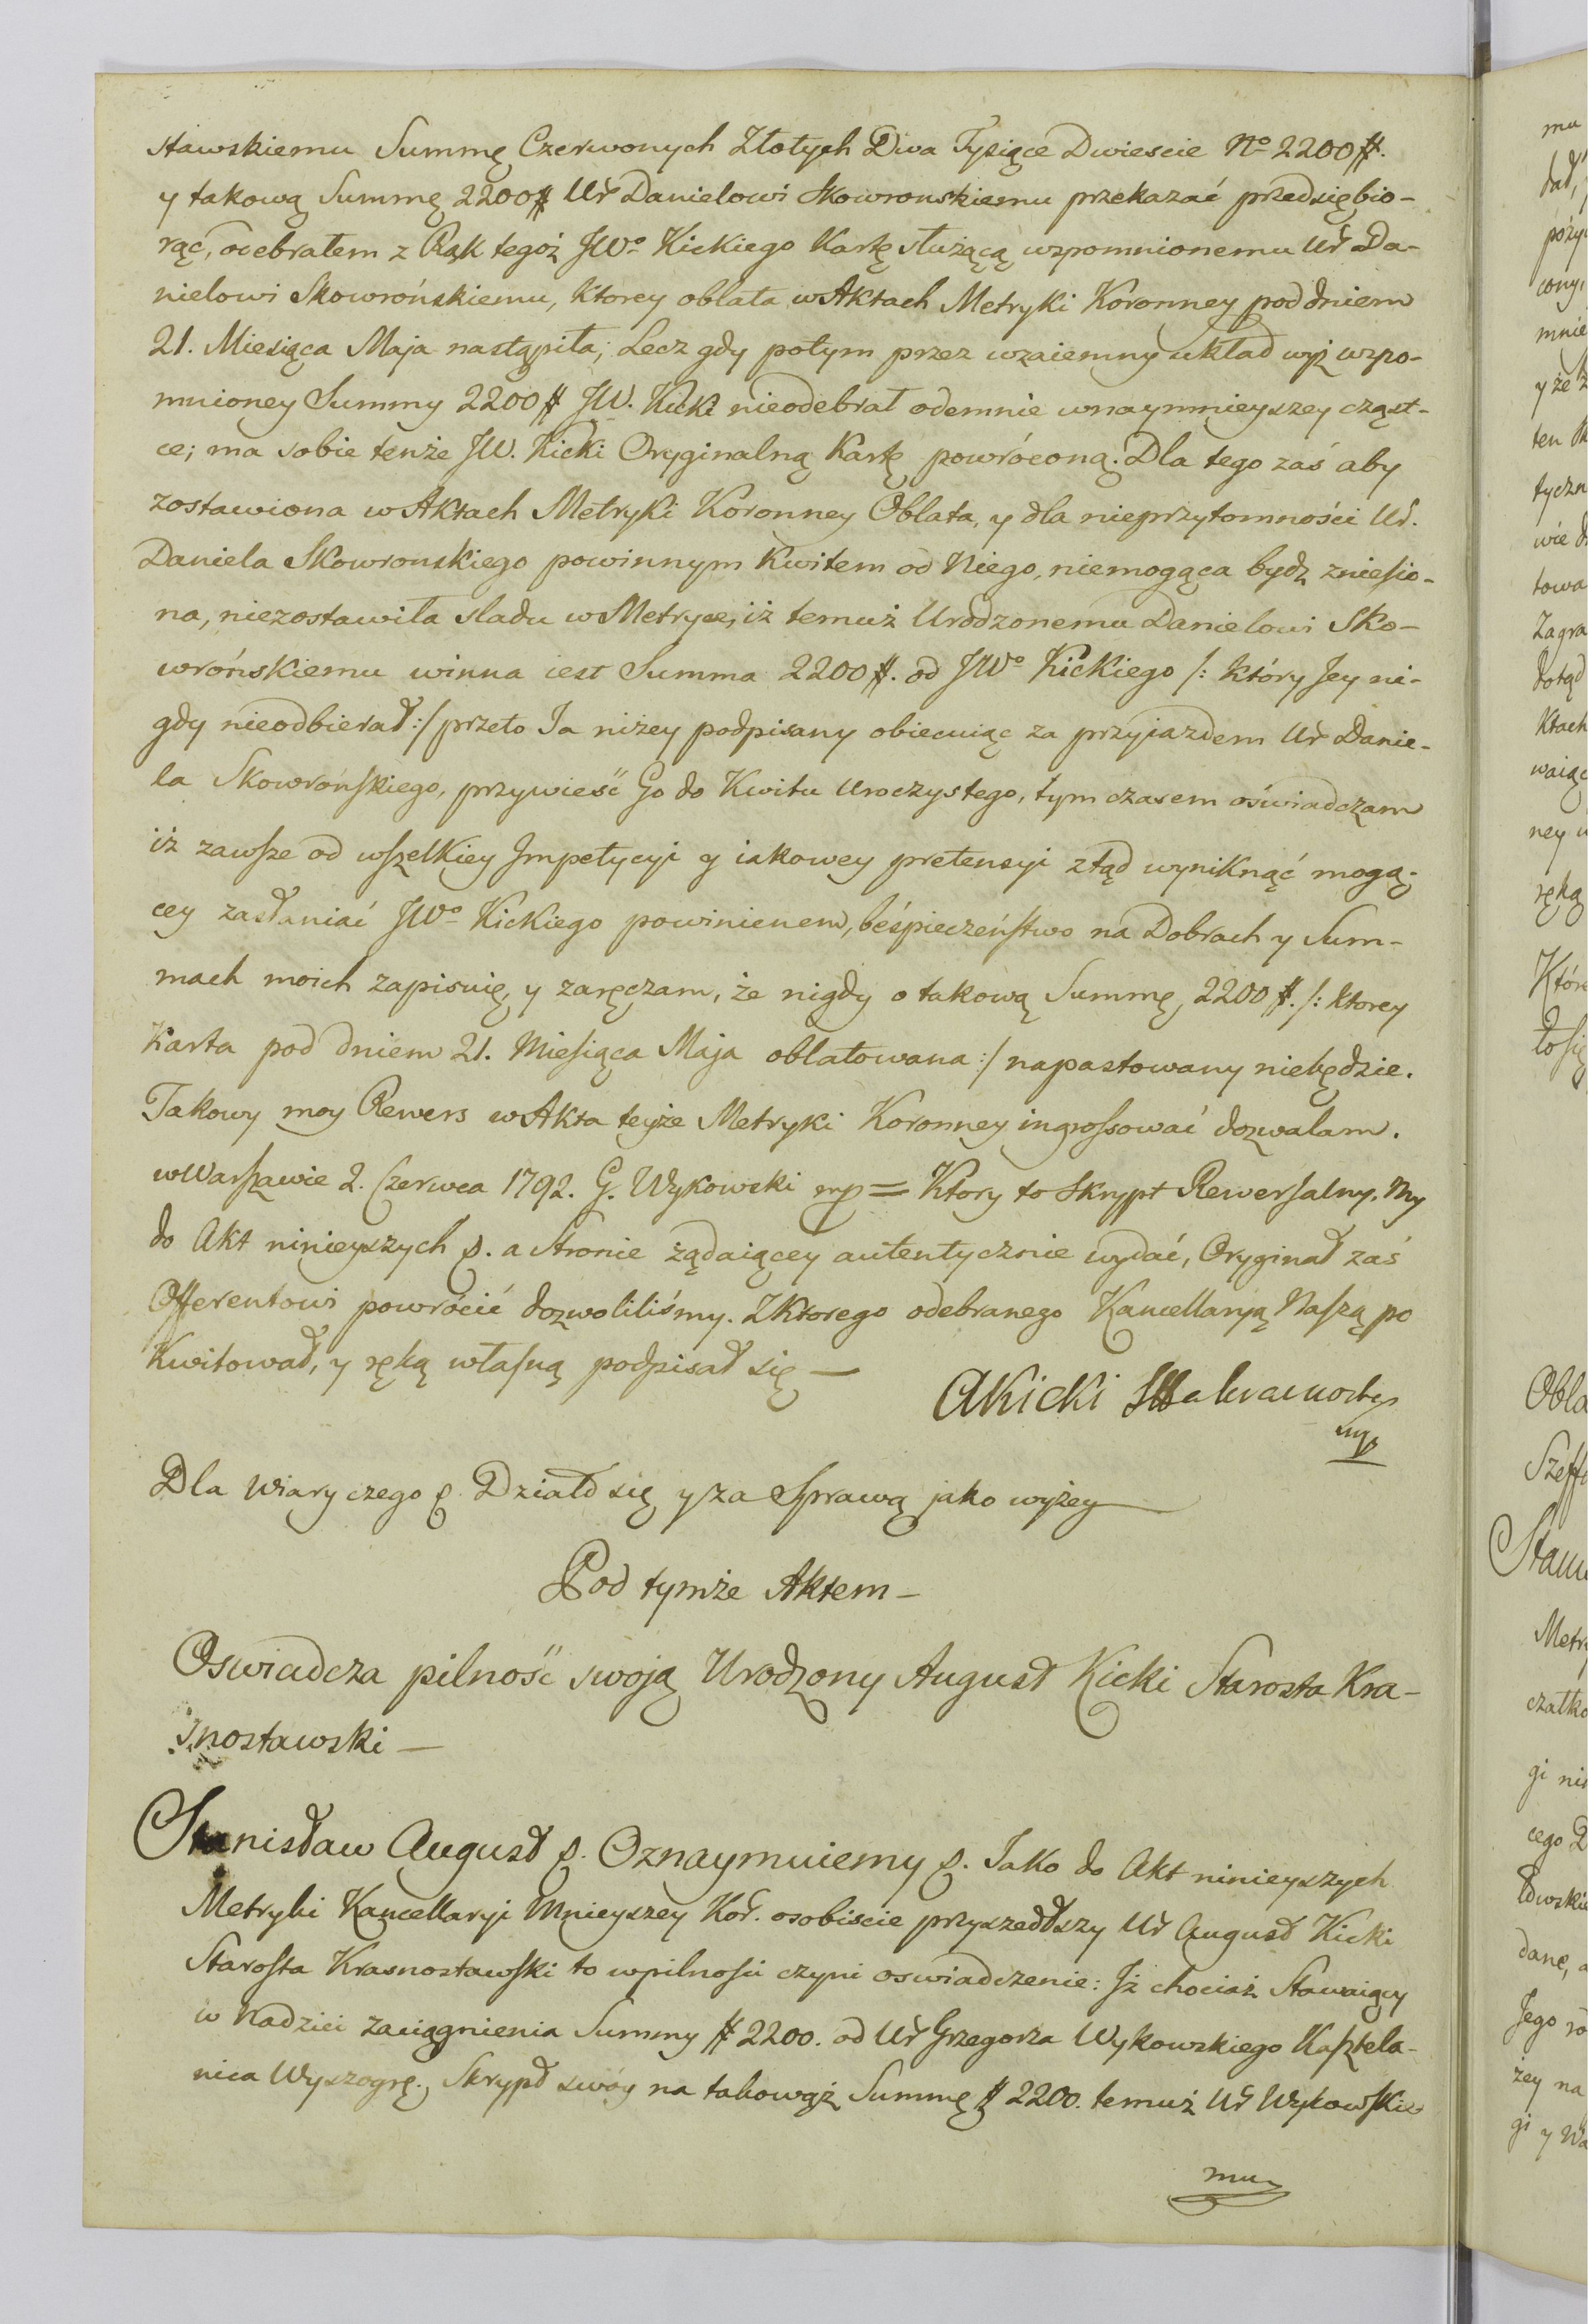 stawskiemu Summę Czerwonych Złotych Dwa Tysiące Dwieście No 2200 #.
y takową Summę 2200 # Ur Danielowi Skowronskiemu przekazać przedsiębio-
rąc, odebrałem z Rąk tegoż JWo Kickiego Kartę służącą wzpomnionemu Ur Da-
nielowi Skowrońskiemu, ktorey oblata w Aktach Metryki Koronney pod dniem
21. Miesiąca Maja nastąpiła; Lecz gdy potym przez wzaiemny układ wyż wzpo-
mnioney Summy 2200 # JW. Kicki nieodebrał odemnie wnaymnieyszey cząst-
ce; ma sobie tenże JW. Kicki Oryginalną Kartę powróconą. Dla tego zaś aby
zostawiona w Aktach Metryki Koronney Oblata, y dla nieprzytomności Ur.
Daniela Skowronskiego powinnym Kwitem od Niego, niemogąca bydz zniesio-
na, niezostawiła sladu w Metryce, iż temuż Urodzonemu Danielowi Sko-
wrońskiemu winna iest Summa 2200 #. od JWo Kickiego /: który Jey ni-
gdy nieodbierał :/ przeto Ja niżey podpisany obiecuiąc za przyjazdem Ur Danie-
la Skowrońskiego, przywieść Go do Kwitu Uroczystego, tym czasem oświadczam
iż zawsze od wszelkiey Impetycyi y iakowey pretensyi ztąd wyniknąć mogą-
cey zasłaniać JWo Kickiego powinienem, beśpieczeństwo na Dobrach y Sum-
mach moich zapisuię, y zaręczam, że nigdy o takową Summę 2200 #. /: ktorey
Karta pod dniem 21. Miesiąca Maja oblatowana :/ napastowany niebędzie.
Takowy moy Rewers w Akta teyże Metryki Koronney ingrossować dozwalam.
w Warszawie 2. Czerwca 1792. G. Wykowski mp = Ktory to Skrypt Rewersalny. My
do Akt ninieyszych p. a Stronie żądaiącey autentycznie wydać, Oryginał zaś
Offerentowi powrócić dozwoliliśmy. Z Ktorego odebranego Kancellaryą Naszą po
Kwitował, y ręką własną podpisał się —
AKicki
mp
Dla Wiary czego p. Działo się y za Sprawą jako wyżey
Pod tymże Aktem —
Oswiadcza pilność swoją Urodzony August Kicki Starosta Kra-
snostawski —
Stanisław August p. Oznaymuiemy p. Jako do Akt ninieyszych
Metryki Kancellaryi Mnieyszey Kor. osobiscie przyszedłszy Ur August Kicki
Starosta Krasnostawski to wpilności czyni oswiadczenie: Iż chociaż Stawaiący
w Nadziei zaciągnienia Summy # 2200. od Ur Grzegorza Wykowskiego Kasztela-
nica Wyszogr. Skrypt swóy na takowąż Summę # 2200. temuż Ur Wykowskie
mu